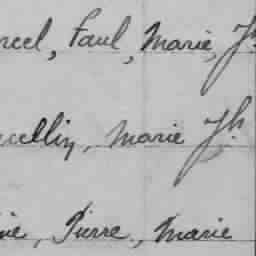 rcel, Paul, Marie, Jh
uellin, Marie Jh
ie, Pierre, Marie